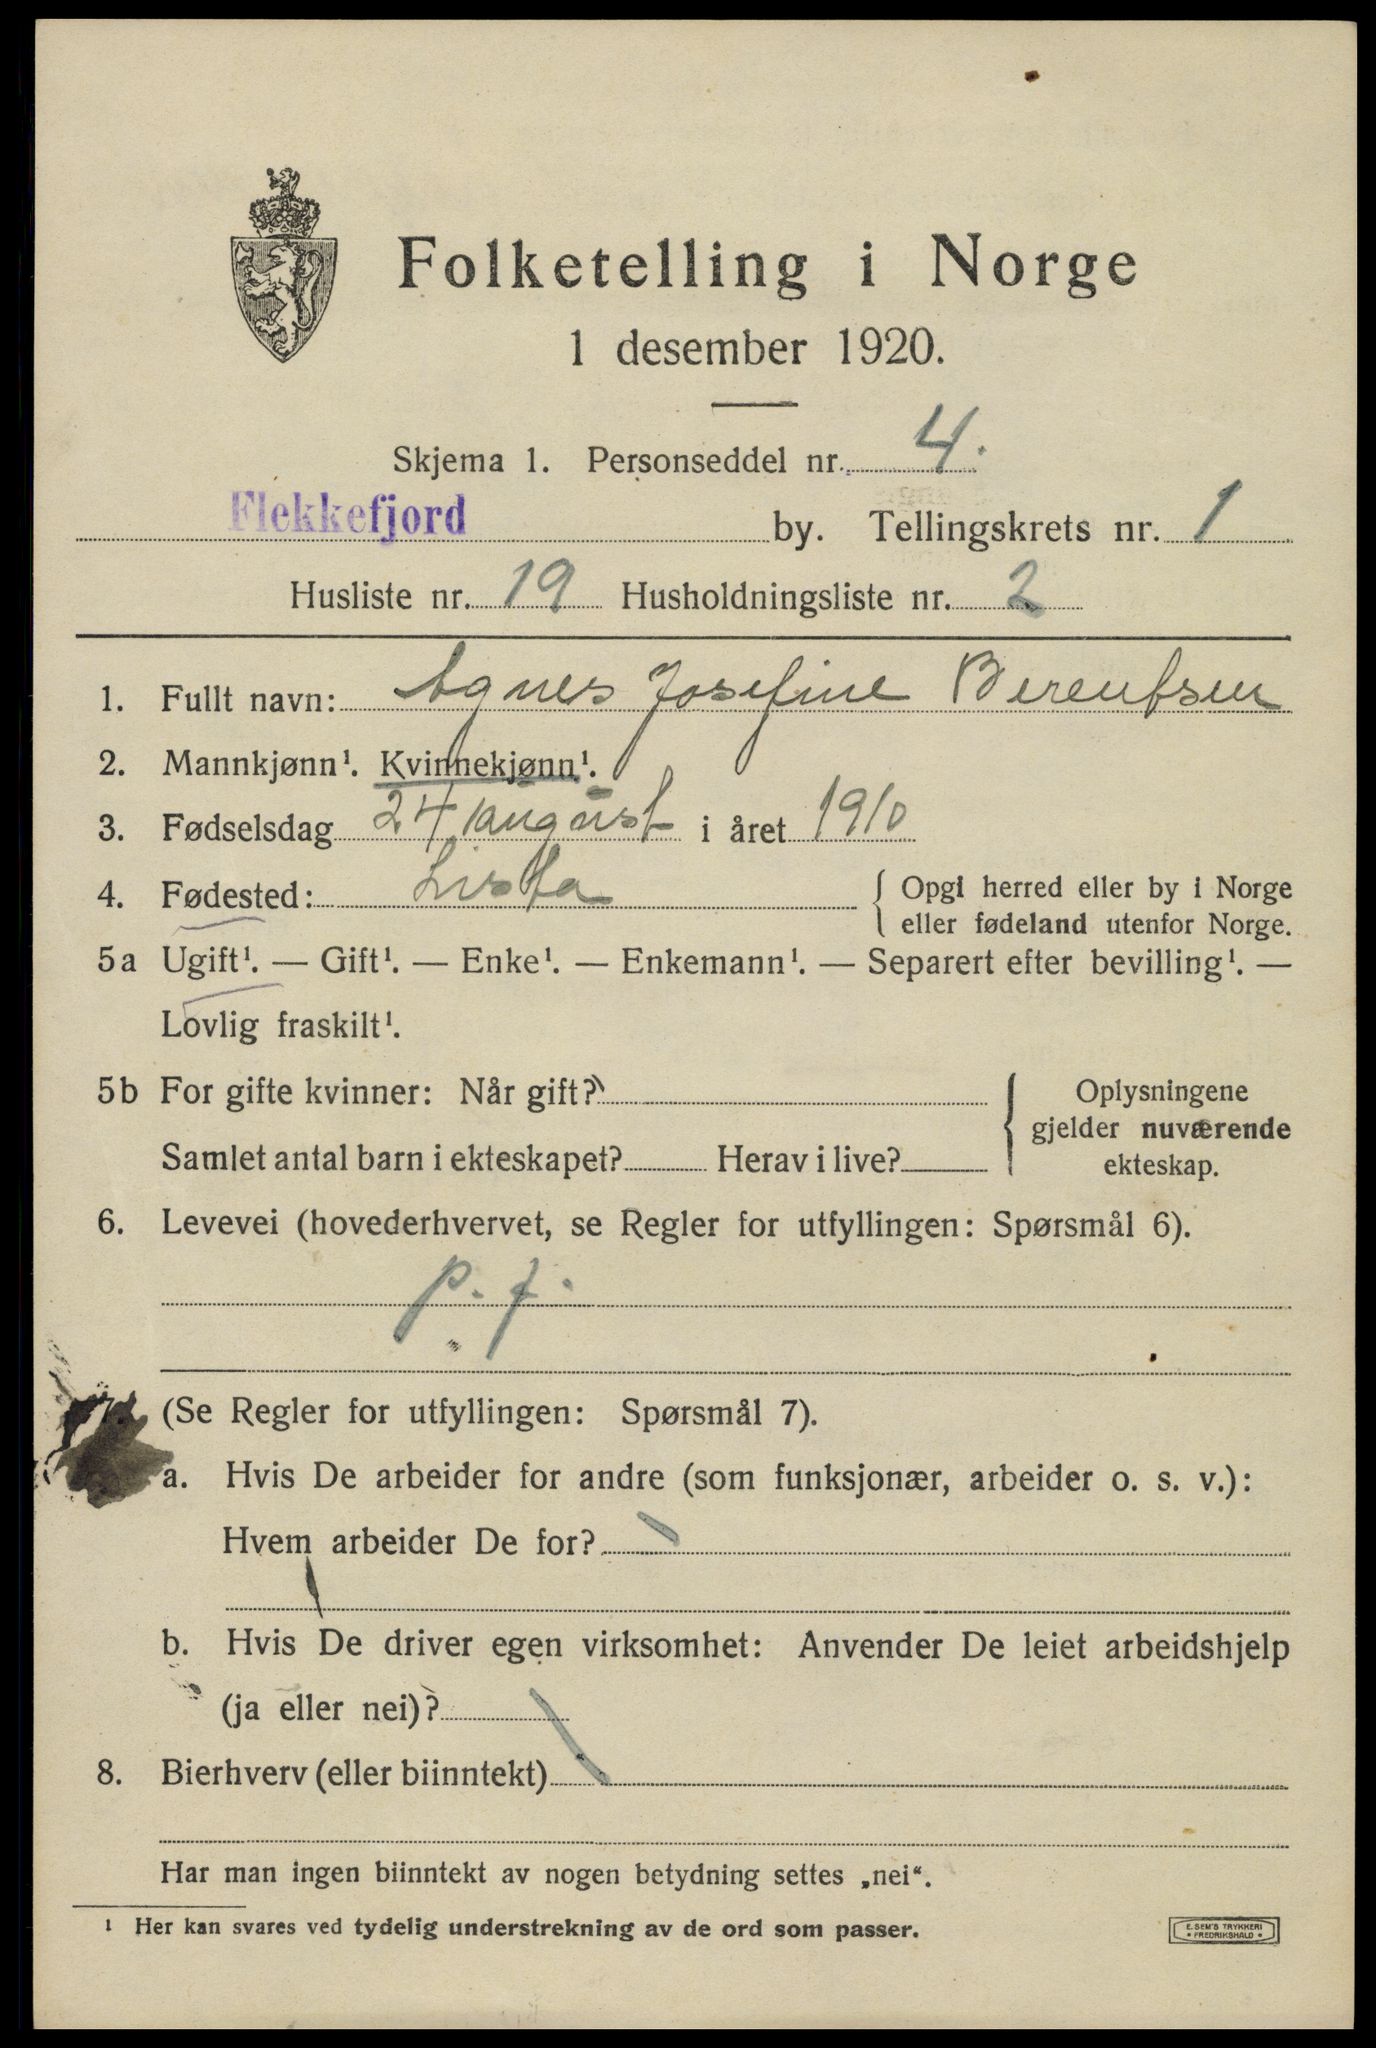 Folketelling i Norge
1 desember 1920.
Skjema 1. Personseddel nr. 4.
Flekkefjord by. Tellingskrets nr. 1
Husliste nr. 19 Husholdningsliste nr. 2
1. Fullt navn: Agnes Josefine Berentsen
2. Mannkjønn¹. Kvinnekjønn¹.
3. Fødselsdag 24 august i året 1910
4. Fødested: Lista { Opgi herred eller by i Norge
eller fødeland utenfor Norge.
5a Ugift¹. — Gift¹. — Enke¹. — Enkemann¹. — Separert efter bevilling¹. —
Lovlig fraskilt¹.
5b For gifte kvinner: Når gift? { Oplysningene
gjelder nuværende
Samlet antal barn i ekteskapet? Herav i live? ekteskap.
6. Levevei (hovederhvervet, se Regler for utfyllingen: Spørsmål 6).
p. f.
7. (Se Regler for utfyllingen: Spørsmål 7).
a. Hvis De arbeider for andre (som funksjonær, arbeider o. s. v.):
Hvem arbeider De for?
b. Hvis De driver egen virksomhet: Anvender De leiet arbeidshjelp
(ja eller nei)?
8. Bierhverv (eller biinntekt)
Har man ingen biinntekt av nogen betydning settes „nei“.
1 Her kan svares ved tydelig understrekning av de ord som passer.
E. SEM'S TRYKKERI
• FREDRIKSHALD •